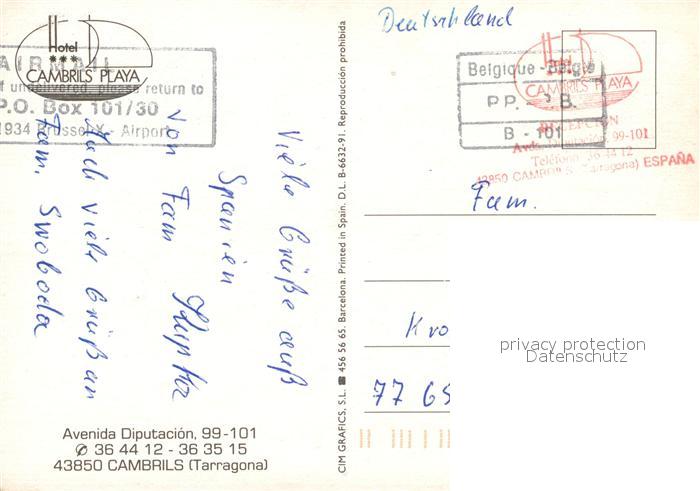 Hotel
***
CAMBRILS PLAYA
AIRMAIL
If undelivered, please return to
P.O. Box 101/30
1934 Brussel X - Airport
Viele Grüße auß
Spanien
von Fam
Auch viele Grüß an
Fam. Swoboda
Avenida Diputación, 99-101
✆ 36 44 12 - 36 35 15
43850 CAMBRILS (Tarragona)
CIM GRAFICS, S.L. ☎ 456 56 65. Barcelona. Printed in Spain. D.L. B-6632-91. Reproducción prohibida
Deutschland
Belgique - België
PP. - P.B.
B - 101
Hotel
CAMBRILS PLAYA
RECEPCION
Avda. Diputación, 99-101
Teléfono 36 44 12
43850 CAMBRILS (Tarragona) ESPAÑA
Fam.
Kro
77 65
privacy protection
Datenschutz